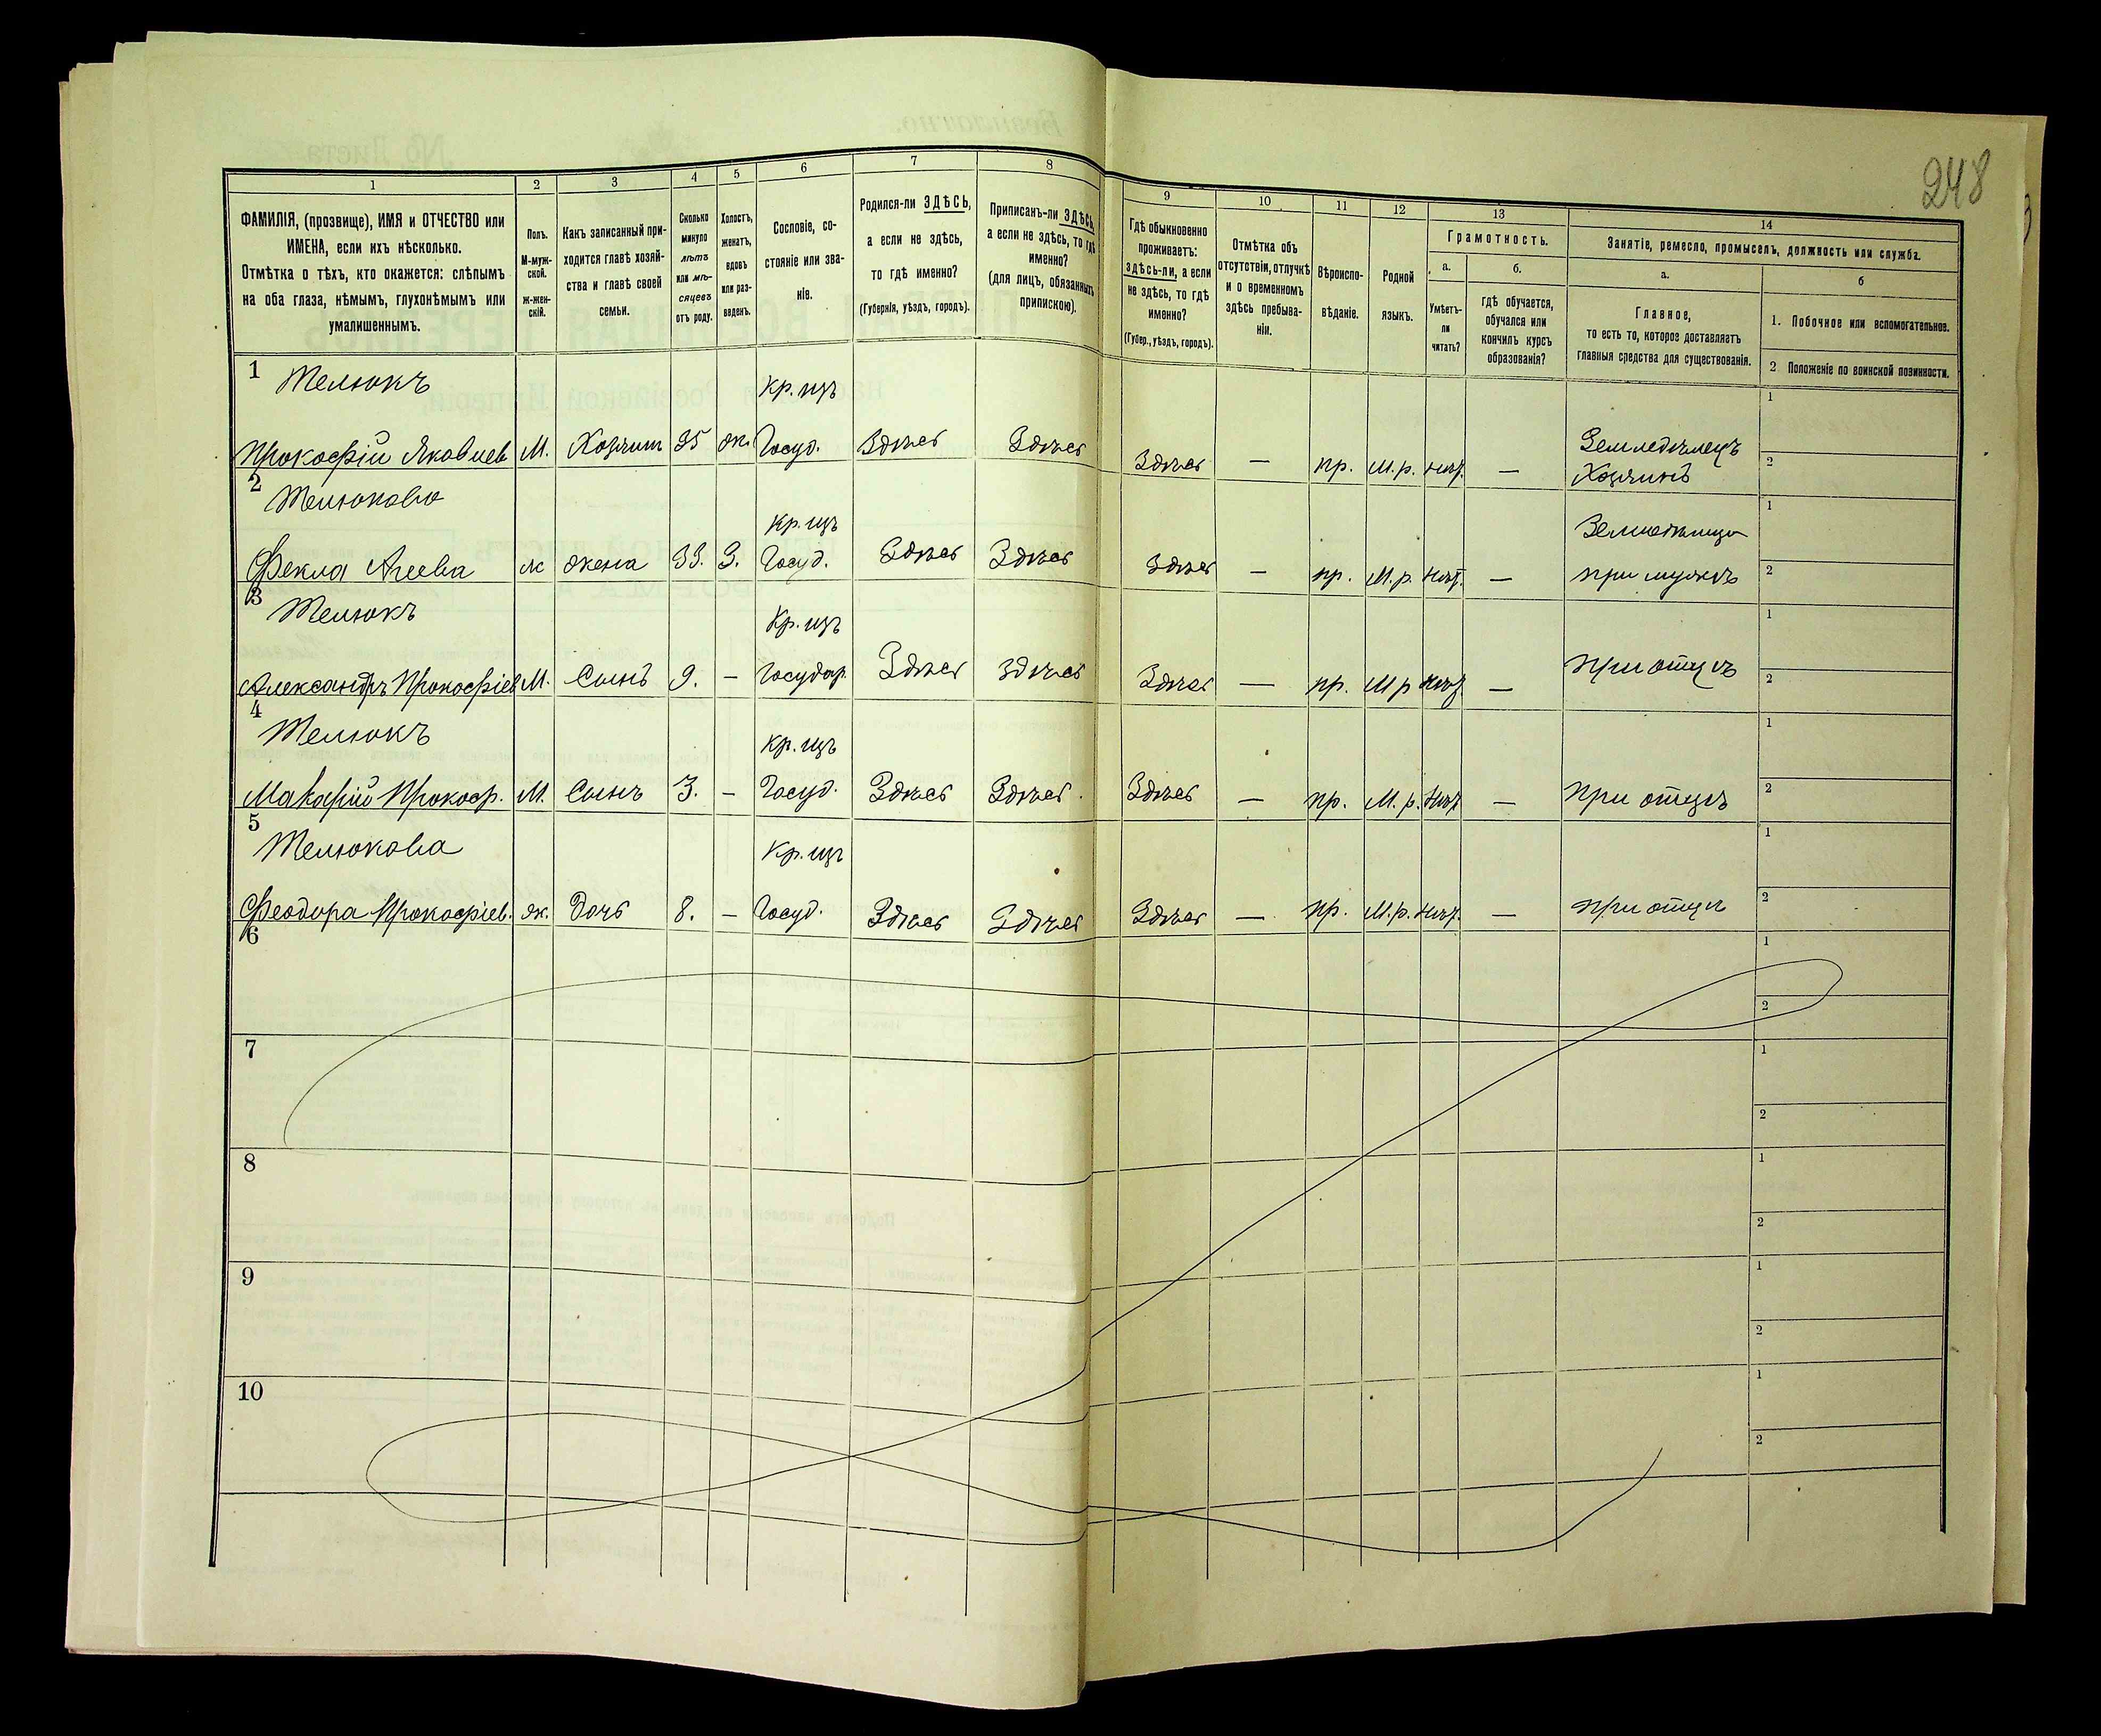 248
1 2 3 4 5 6 7 8 9 10 11 12 13 14
ФАМИЛІЯ, (прозвище), ИМЯ и ОТЧЕСТВО или ИМЕНА, если ихъ нѣсколько.
Отмѣтка о тѣхъ, кто окажется: слѣпымъ на оба глаза, нѣмымъ, глухонѣмымъ или умалишеннымъ.
Полъ.
М-мужской.
ж-женскій.
Какъ записанный приходится главѣ хозяйства и главѣ своей семьи.
Сколько минуло лѣтъ или мѣсяцевъ отъ роду.
Холостъ, женатъ, вдовъ или разведенъ.
Сословіе, состояніе или званіе.
Родился-ли ЗДѢСЬ, а если не здѣсь, то гдѣ именно?
(Губернія, уѣздъ, городъ).
Приписанъ-ли ЗДѢСЬ, а если не здѣсь, то гдѣ именно?
(для лицъ, обязанныхъ припискою).
Гдѣ обыкновенно проживаетъ: здѣсь-ли, а если не здѣсь, то гдѣ именно?
(Губер., уѣздъ, городъ).
Отмѣтка объ отсутствіи, отлучкѣ и о временномъ здѣсь пребываніи.
Вѣроисповѣданіе.
Родной языкъ.
Грамотность.
а. б.
Умѣетъ-ли читать?
гдѣ обучается, обучался или кончилъ курсъ образованія?
Занятіе, ремесло, промыселъ, должность или служба.
а. б
Главное,
то есть то, которое доставляетъ главныя средства для существованія.
1. Побочное или вспомогательное.
2 Положеніе по воинской повинности.
1 Телюкъ Кр. изъ 1
Прокофій Яковлев М. Хозяин 35 ж. Госуд. Здѣсь Здѣсь Здѣсь — пр. М. р. нѣт. — Земледѣлецъ Хозяинъ 2
2 Телюкова Кр. изъ 1
Фекла жена 33. З. Госуд. Здѣсь Здѣсь Здѣсь — пр. М. р. нѣт. — при мужѣ 2
3 Телюкъ Кр. изъ 1
Александръ Прокофіев М. Сынъ 9. — Государ. Здѣсь Здѣсь Здѣсь — пр. М р нѣт — при отцѣ 2
4 Телюкъ Кр. изъ 1
Макарій Прокоф. М. Сынъ 3. — Госуд. Здѣсь Здѣсь Здѣсь — пр. М. р. нѣт — при отцѣ 2
5 Телюкова Кр. изъ 1
Феодора Прокофіев. ж. Дочь 8. — Госуд. Здѣсь Здѣсь Здѣсь — пр. М. р. нѣт. — при отцѣ 2
6 1
2
7 1
2
8 1
2
9 1
2
10 1
2